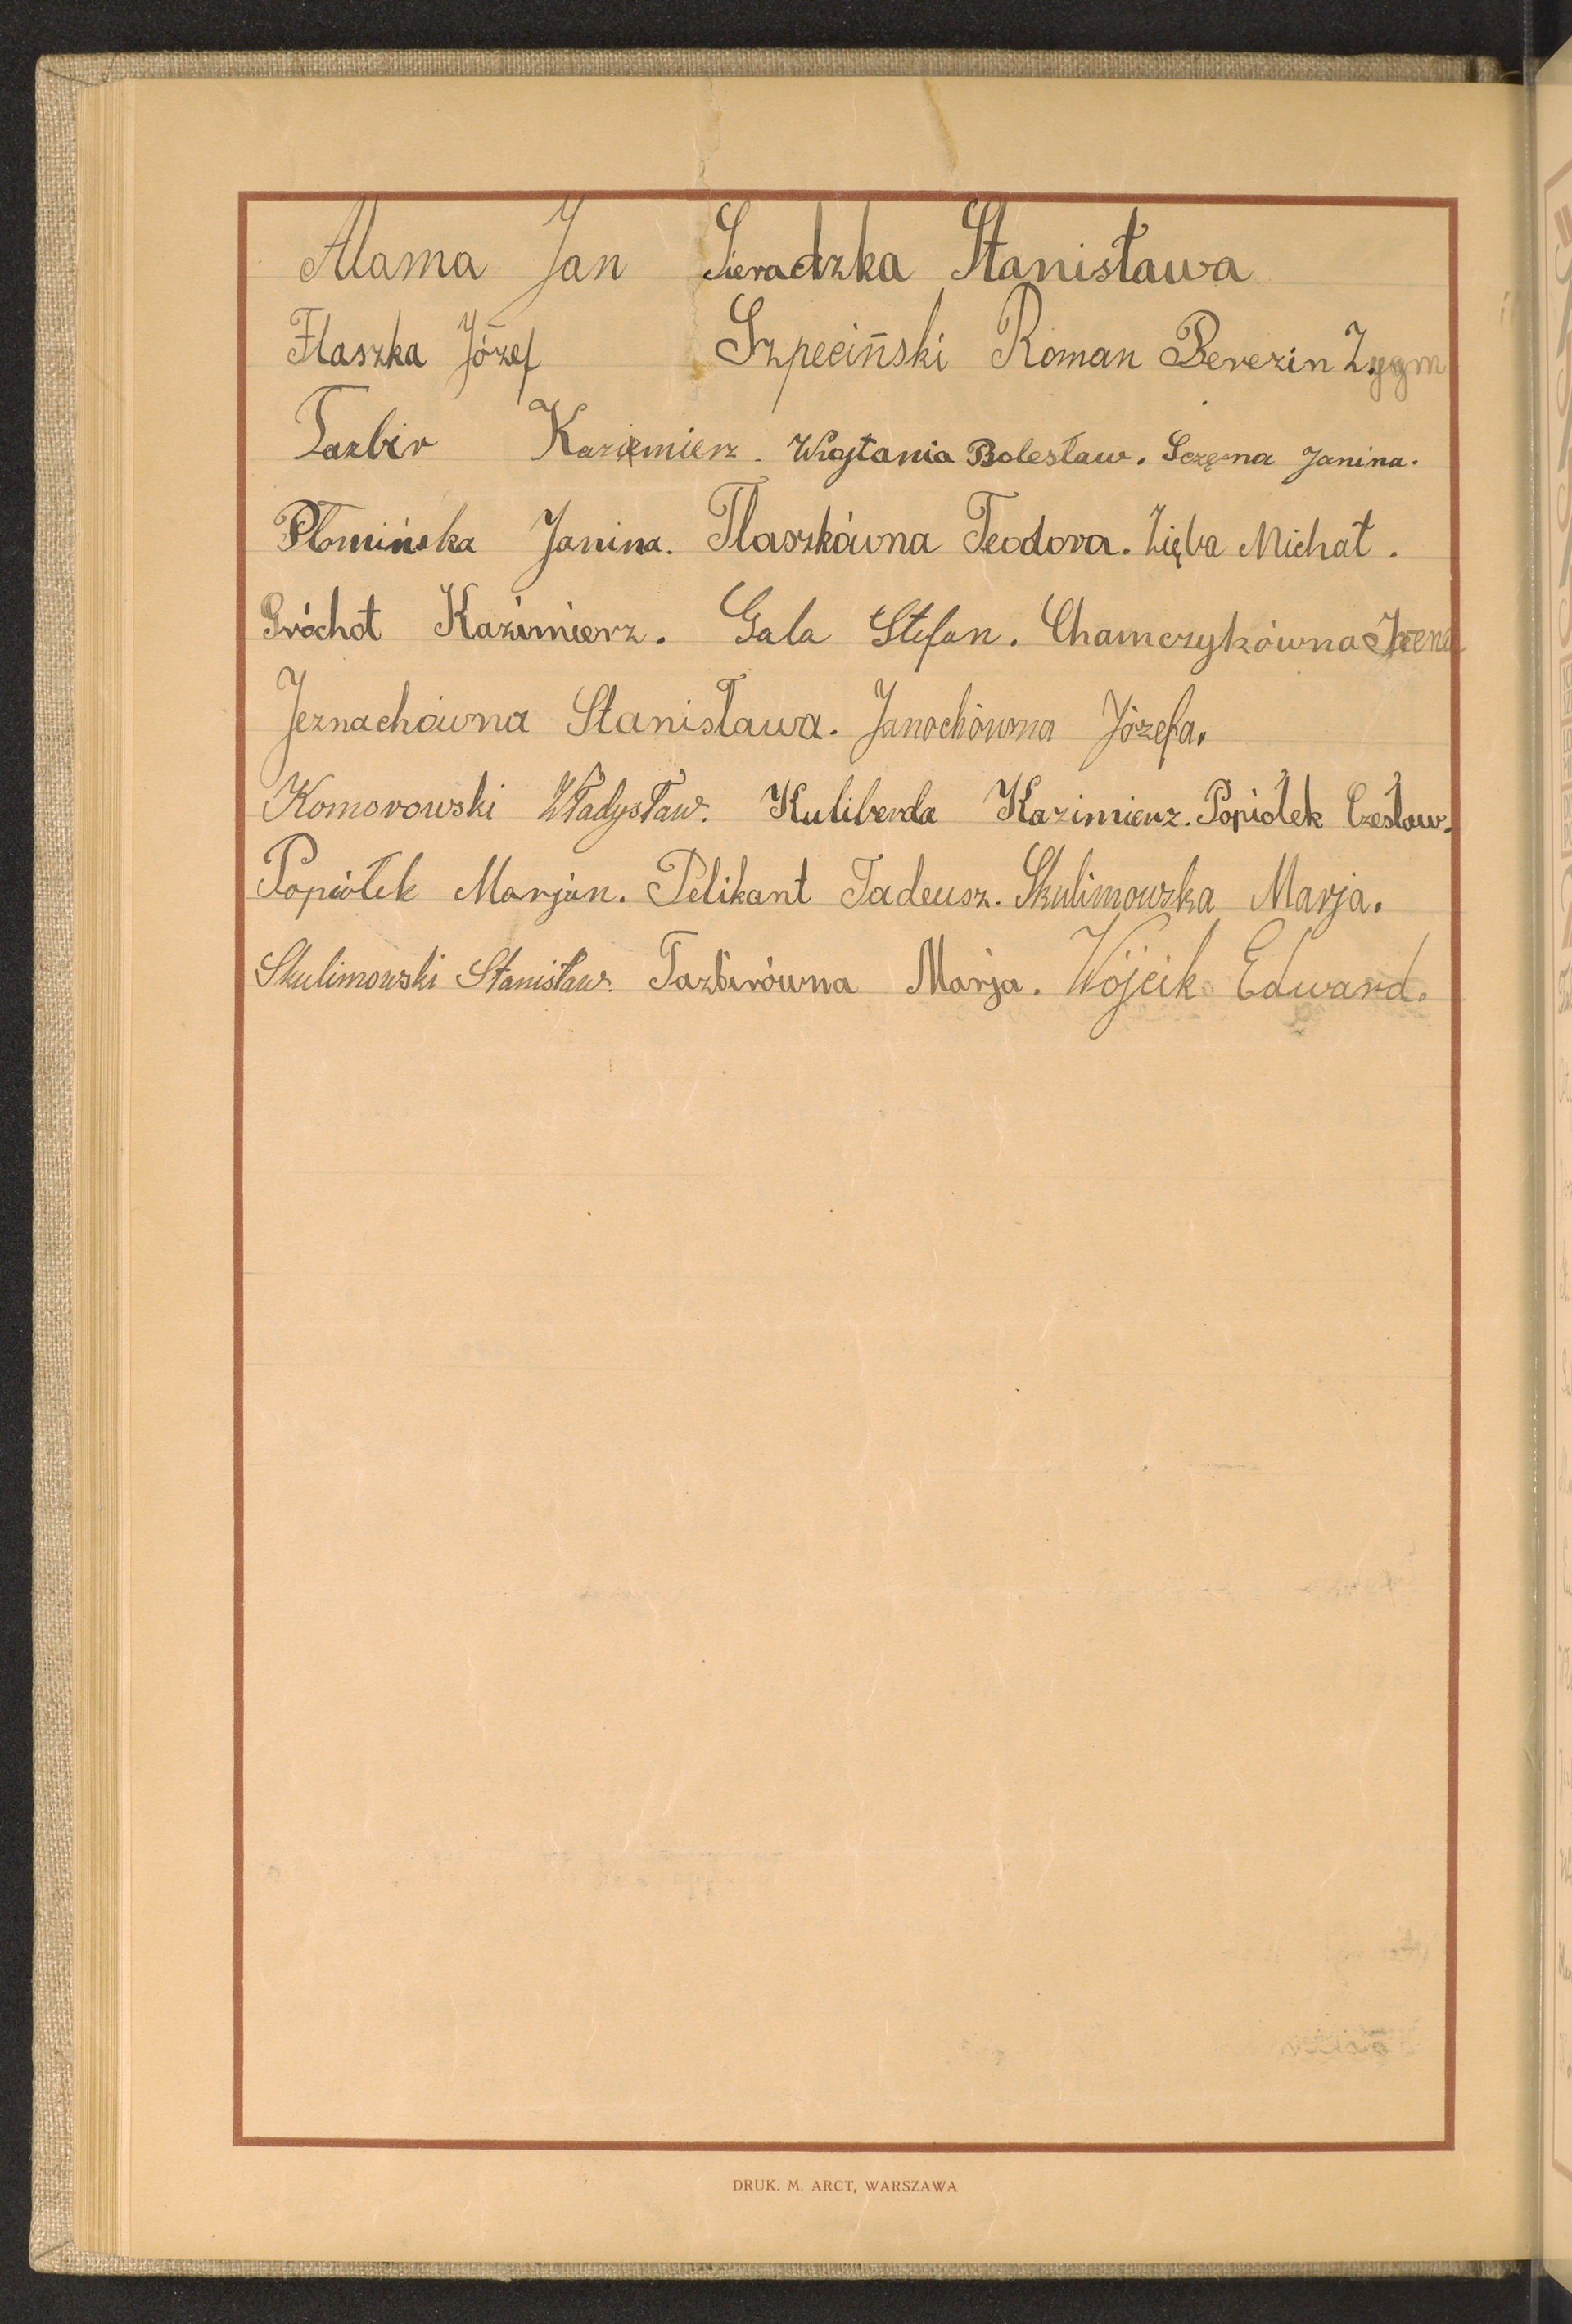 Alama Jan Sieradzka Stanisława
Flaszka Józef Szpeciński Roman Berezin Zygm
Tazbir Kaziemierz. Wojtania Bolesław. Sczęsna Janina.
Płomińska Janina. Flaszkówna Teodora. Zięba Michał.
Próchot Kazimierz. Gala Stefan. Chamczykówna Irena
Jeznachówna Stanisława. Janochówna Józefa.
Komorowski Władysław. Kuliberda Kazimierz. Popiołek Czesław.
Popiołek Marjan. Pelikant Tadeusz. Skulimowska Marja.
Skulimowski Stanisław. Tazbirówna Marja. Wójcik Edward.
DRUK. M. ARCT, WARSZAWA